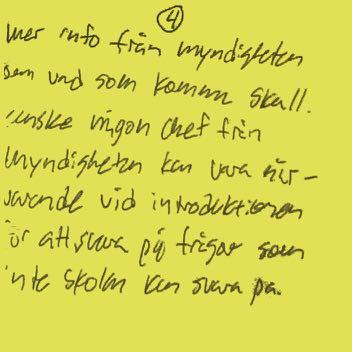 ④
mer info från myndigheten
om vad som komma skall.
kanske någon chef från
myndigheten kan vara när-
varande vid introduktionen
för att svara på frågor som
inte skolan kan svara på.